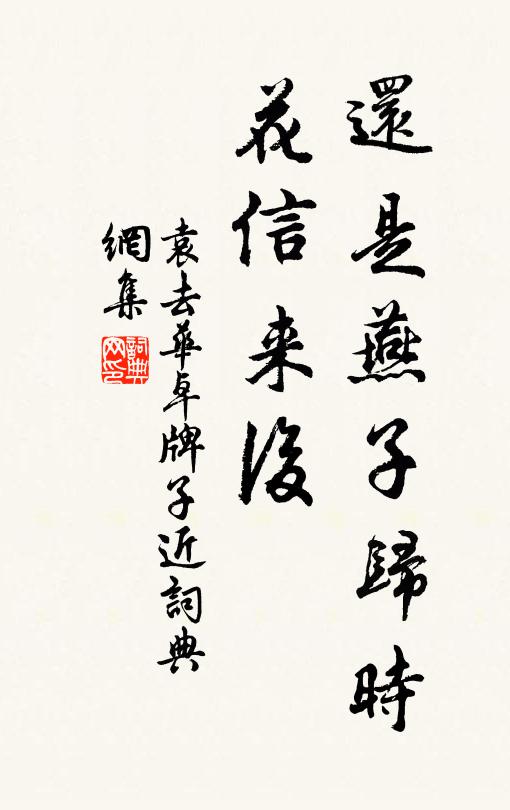 還是燕子歸時
花信来後
袁去華卓牌子近詞典
網集
詞典
网印